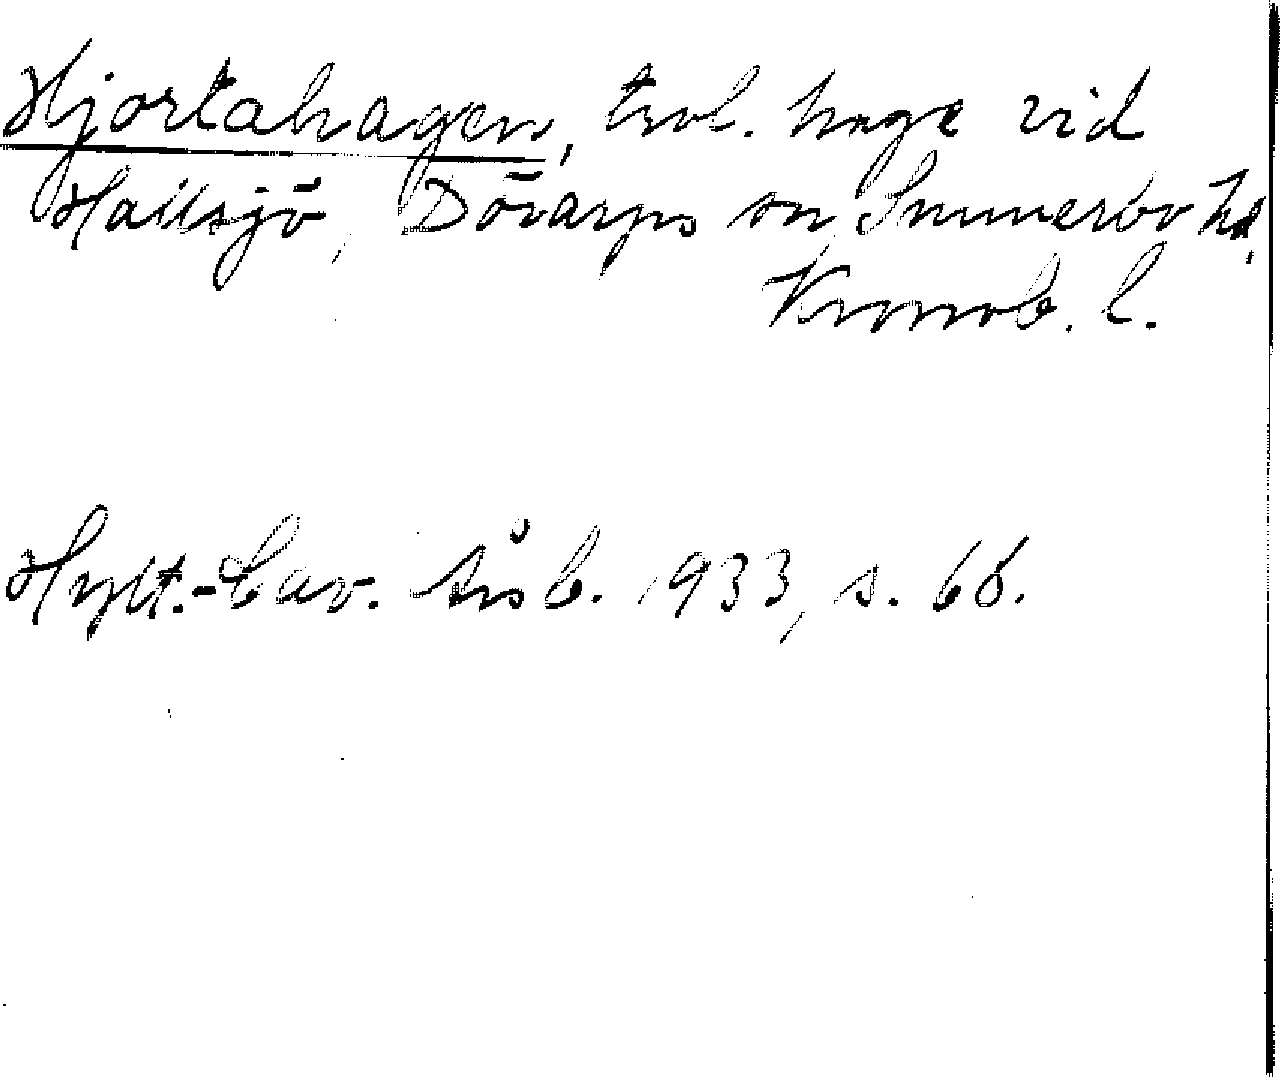 Hjortahagen, trol. hage vid
Hallsjö, Dörarps sn, Sunnerbo hd,
Kronob. l.
Hylt.-Cav. Årsb. 1933, s. 66.